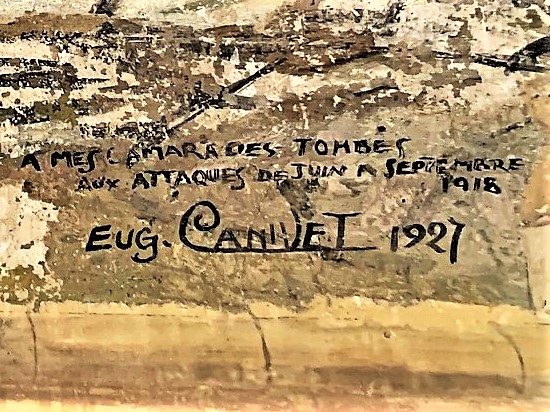 A MES CAMARADES TOMBÉS
AUX ATTAQUES DE JUIN A SEPTEMBRE
1918
EUG. CANIVET 1927